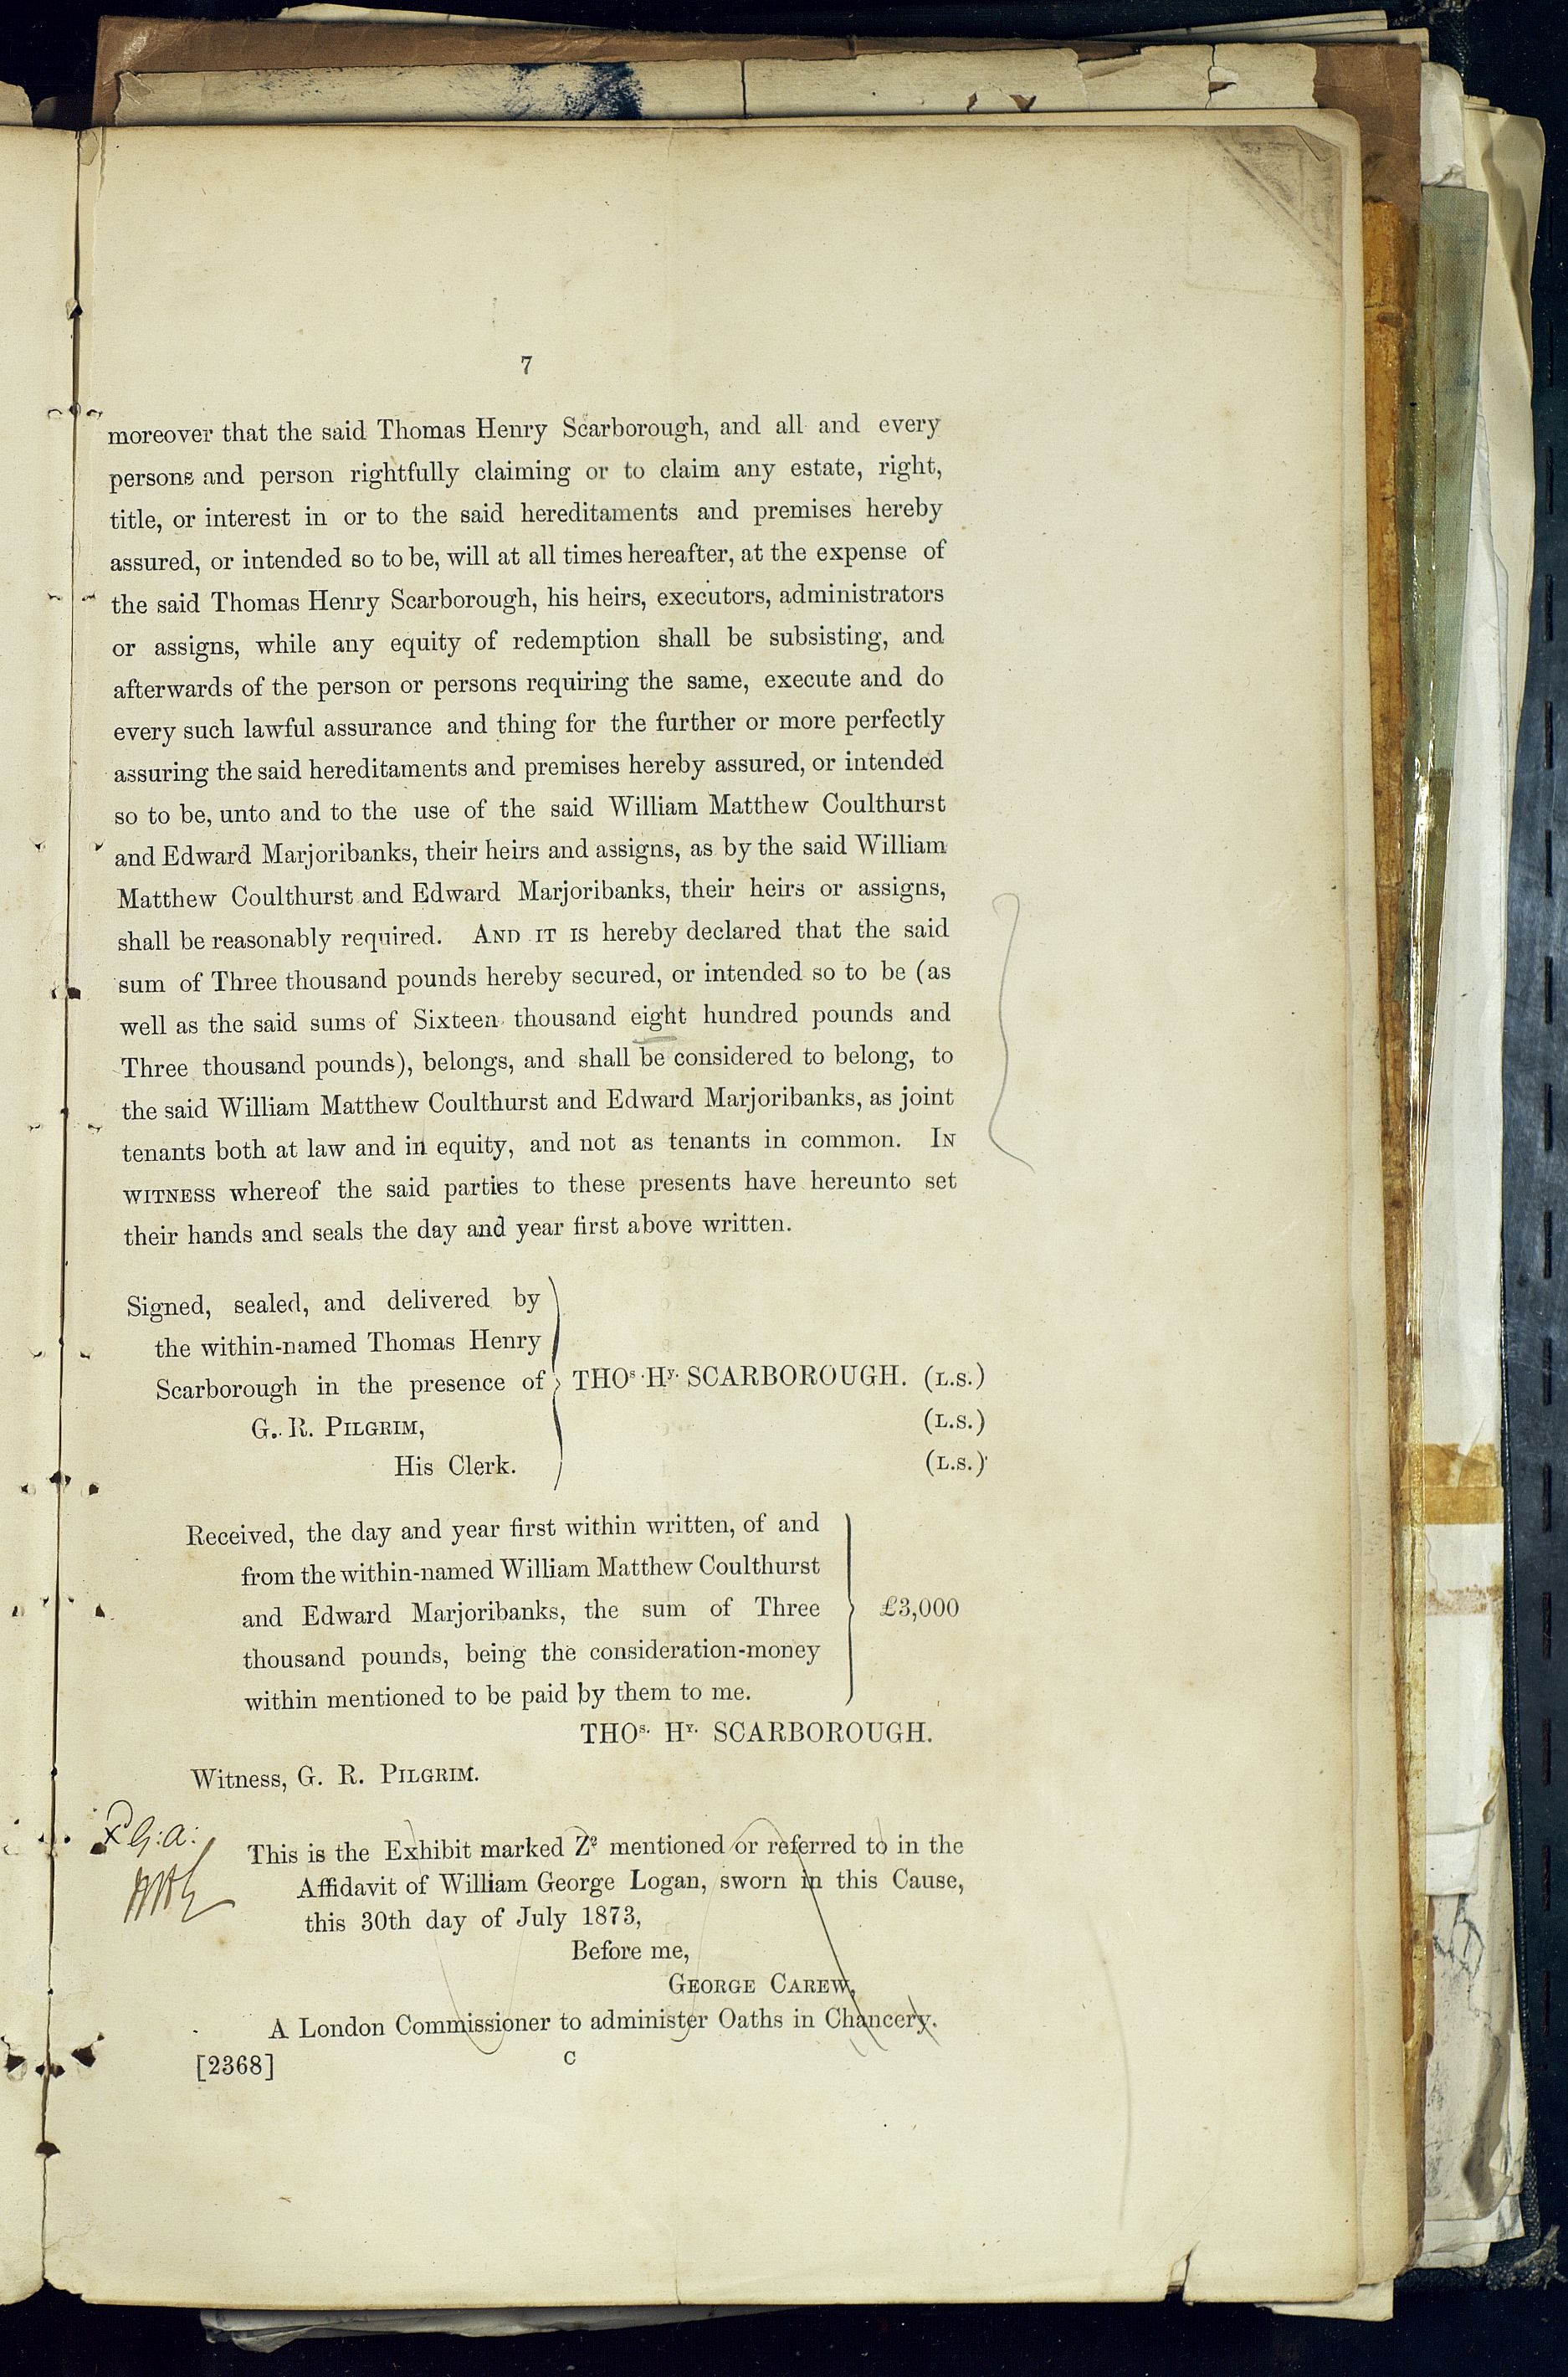 7
moreover that the said Thomas Henry Scarborough, and all and every
persons and person rightfully claiming or to claim any estate, right,
title, or interest in or to the said hereditaments and premises hereby
assured, or intended so to be, will at all times hereafter, at the expense of
the said Thomas Henry Scarborough, his heirs, executors, administrators
or assigns, while any equity of redemption shall be subsisting, and
afterwards of the person or persons requiring the same, execute and do
every such lawful assurance and thing for the further or more perfectly
assuring the said hereditaments and premises hereby assured, or intended
so to be, unto and to the use of the said William Matthew Coulthurst
and Edward Marjoribanks, their heirs and assigns, as by the said William
Matthew Coulthurst and Edward Marjoribanks, their heirs or assigns,
shall be reasonably required. AND IT IS hereby declared that the said
sum of Three thousand pounds hereby secured, or intended so to be (as
well as the said sums of Sixteen thousand eight hundred pounds and
Three thousand pounds), belongs, and shall be considered to belong, to
the said William Matthew Coulthurst and Edward Marjoribanks, as joint
tenants both at law and in equity, and not as tenants in common. IN
WITNESS whereof the said parties to these presents have hereunto set
their hands and seals the day and year first above written.
Signed, sealed, and delivered by
the within-named Thomas Henry
Scarborough in the presence of
G. R. PILGRIM,
His Clerk.
THOs. Hy. SCARBOROUGH. (L.S.)
(L.S.)
(L.S.)
Received, the day and year first within written, of and
from the within-named William Matthew Coulthurst
and Edward Marjoribanks, the sum of Three
thousand pounds, being the consideration-money
within mentioned to be paid by them to me.
£3,000
THOs. Hy. SCARBOROUGH.
Witness, G. R. PILGRIM.
G: a:
This is the Exhibit marked Z² mentioned or referred to in the
Affidavit of William George Logan, sworn in this Cause,
this 30th day of July 1873,
Before me,
GEORGE CAREW,
A London Commissioner to administer Oaths in Chancery.
[2368] C